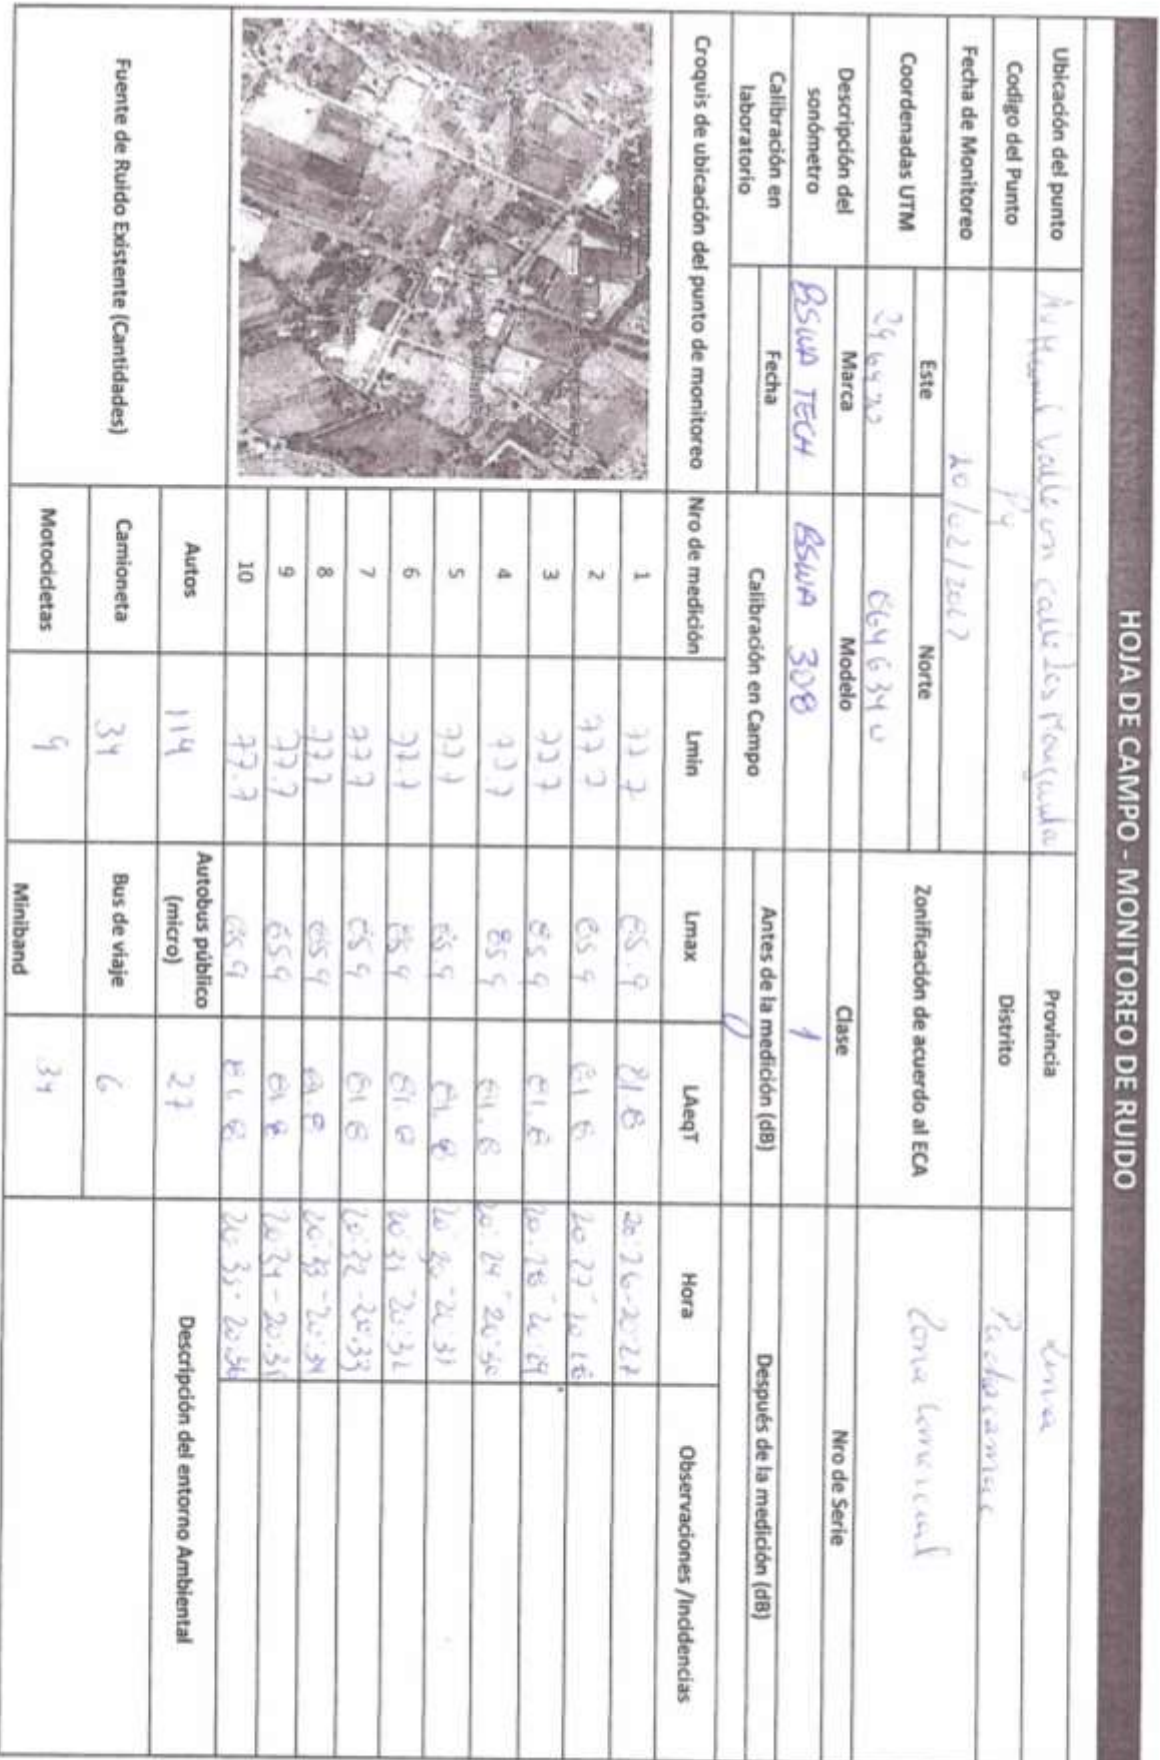 HOJA DE CAMPO - MONITOREO DE RUIDO
Ubicación del punto Av Manuel Valle con calle Los Provincia Lima
Codigo del Punto P4 Distrito Pachacamac
Fecha de Monitoreo 20/02/2023
Coordenadas UTM Este Norte Zonificación de acuerdo al ECA Zona Comercial
Descripción del sonómetro Marca Modelo Clase Nro de Serie
BSWA TECH BSWA 308 1
Calibración en laboratorio Fecha Calibración en Campo Antes de la medición (dB) Después de la medición (dB)
0
Croquis de ubicación del punto de monitoreo Nro de medición Lmin Lmax LAeqT Hora Observaciones /Incidencias
1 77 7 85.9 81.8 20:26-20:27
2 77.7 85 9 81 8 20:27-20:28
3 77 7 85 9 81.8 20:28-20:29
4 77.7 85 9 81.8 20:29-20:30
5 77 7 85 9 81.8 20:30-20:31
6 77.7 85 9 81.8 20:31-20:32
7 777 85 9 81 8 20:32-20:33
8 777 85 9 81 8 20:33-20:34
9 77.7 85 9 81 8 20:34-20:35
10 77.7 85 9 81.8 20:35-20:36
Fuente de Ruido Existente (Cantidades) Autos 114 Autobus público (micro) 27 Descripción del entorno Ambiental
Camioneta 34 Bus de viaje 6
Motocicletas 9 Miniband 34